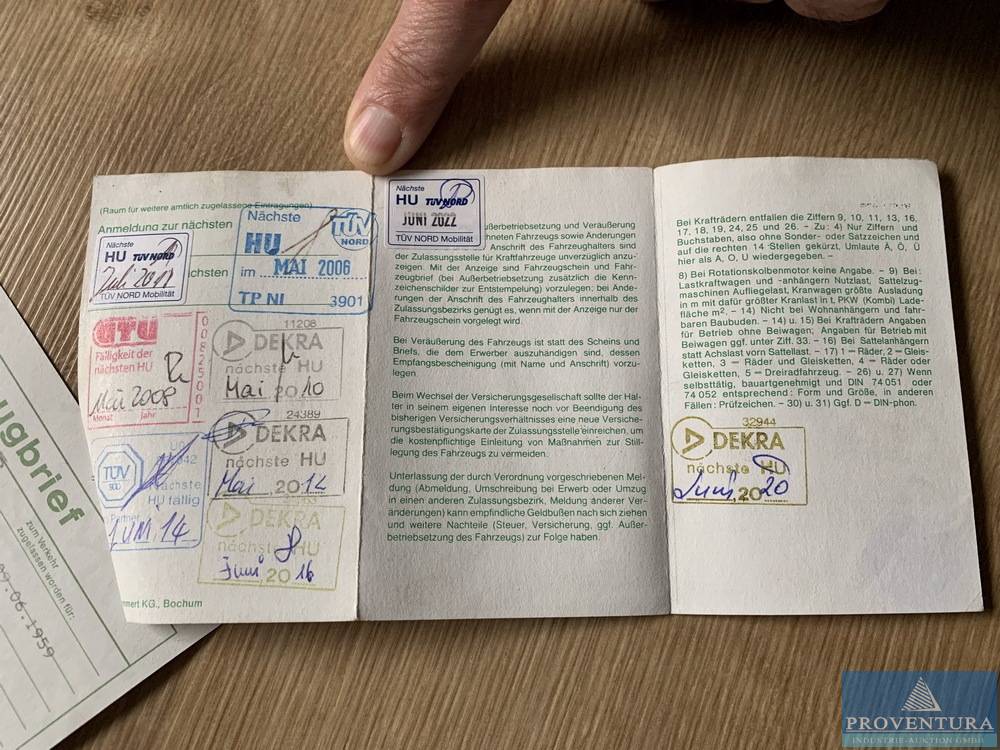 (Raum für weitere amtlich zugelassene Eintragungen)
Anmeldung zur nächsten
Nächste
HU TÜV NORD
Juli 2018
TÜV NORD Mobilität
chsten
Nächste
HU
TÜV NORD
im MAI 2006
TP NI 3901
GTÜ
Fälligkeit der
nächsten HU
Mai 2008
Monat Jahr
00825001
11208
DEKRA
nächste HU
Mai 2010
24389
DEKRA
nächste HU
Mai 2012
TÜV
SÜD
nächste
HU fällig
Partner
JUNI 14
DEKRA
nächste HU
Juni 2016
mmert KG., Bochum
Nächste
HU TÜV NORD
JUNI 2022
TÜV NORD Mobilität
ßerbetriebsetzung und Veräußerung
hneten Fahrzeugs sowie Änderungen
Anschrift des Fahrzeughalters sind
der Zulassungsstelle für Kraftfahrzeuge unverzüglich anzu-
zeigen. Mit der Anzeige sind Fahrzeugschein und Fahr-
zeugbrief (bei Außerbetriebsetzung zusätzlich die Kenn-
zeichenschilder zur Entstempelung) vorzulegen; bei Ände-
rungen der Anschrift des Fahrzeughalters innerhalb des
Zulassungsbezirks genügt es, wenn mit der Anzeige nur der
Fahrzeugschein vorgelegt wird.
Bei Veräußerung des Fahrzeugs ist statt des Scheins und
Briefs, die dem Erwerber auszuhändigen sind, dessen
Empfangsbescheinigung (mit Name und Anschrift) vorzu-
legen.
Beim Wechsel der Versicherungsgesellschaft sollte der Hal-
ter in seinem eigenen Interesse noch vor Beendigung des
bisherigen Versicherungsverhältnisses eine neue Versiche-
rungsbestätigungskarte der Zulassungsstelle einreichen, um
die kostenpflichtige Einleitung von Maßnahmen zur Still-
legung des Fahrzeugs zu vermeiden.
Unterlassung der durch Verordnung vorgeschriebenen Mel-
dung (Abmeldung, Umschreibung bei Erwerb oder Umzug
in einen anderen Zulassungsbezirk, Meldung anderer Ver-
änderungen) kann empfindliche Geldbußen nach sich ziehen
und weitere Nachteile (Steuer, Versicherung, ggf. Außer-
betriebsetzung des Fahrzeugs) zur Folge haben.
Bei Krafträdern entfallen die Ziffern 9, 10, 11, 13, 16,
17, 18, 19, 24, 25 und 26. - Zu: 4) Nur Ziffern und
Buchstaben, also ohne Sonder- oder Satzzeichen und
auf die rechten 14 Stellen gekürzt, Umlaute Ä, Ö, Ü
hier als A, O, U wiedergegeben. –
8) Bei Rotationskolbenmotor keine Angabe. – 9) Bei:
Lastkraftwagen und -anhängern Nutzlast, Sattelzug-
maschinen Aufliegelast, Kranwagen größte Ausladung
in m mit dafür größter Kranlast in t, PKW (Kombi) Lade-
fläche m². – 14) Nicht bei Wohnanhängern und fahr-
baren Baubuden. – 14) u. 15) Bei Krafträdern Angaben
für Betrieb ohne Beiwagen; Angaben für Betrieb mit
Beiwagen ggf. unter Ziff. 33. – 16) Bei Sattelanhängern
statt Achslast vorn Sattellast. – 17) 1 = Räder, 2 = Gleis-
ketten, 3 = Räder und Gleisketten, 4 = Räder oder
Gleisketten, 5 = Dreiradfahrzeug. – 26) u. 27) Wenn
selbsttätig, bauartgenehmigt und DIN 74 051 oder
74 052 entsprechend: Form und Größe, in anderen
Fällen: Prüfzeichen. – 30) u. 31) Ggf. D = DIN-phon.
32944
DEKRA
nächste HU
Juni 2020
ugbrief
zum Verkehr
zugelassen worden für:
09.06.1959
PROVENTURA
INDUSTRIE-AUKTION GMBH